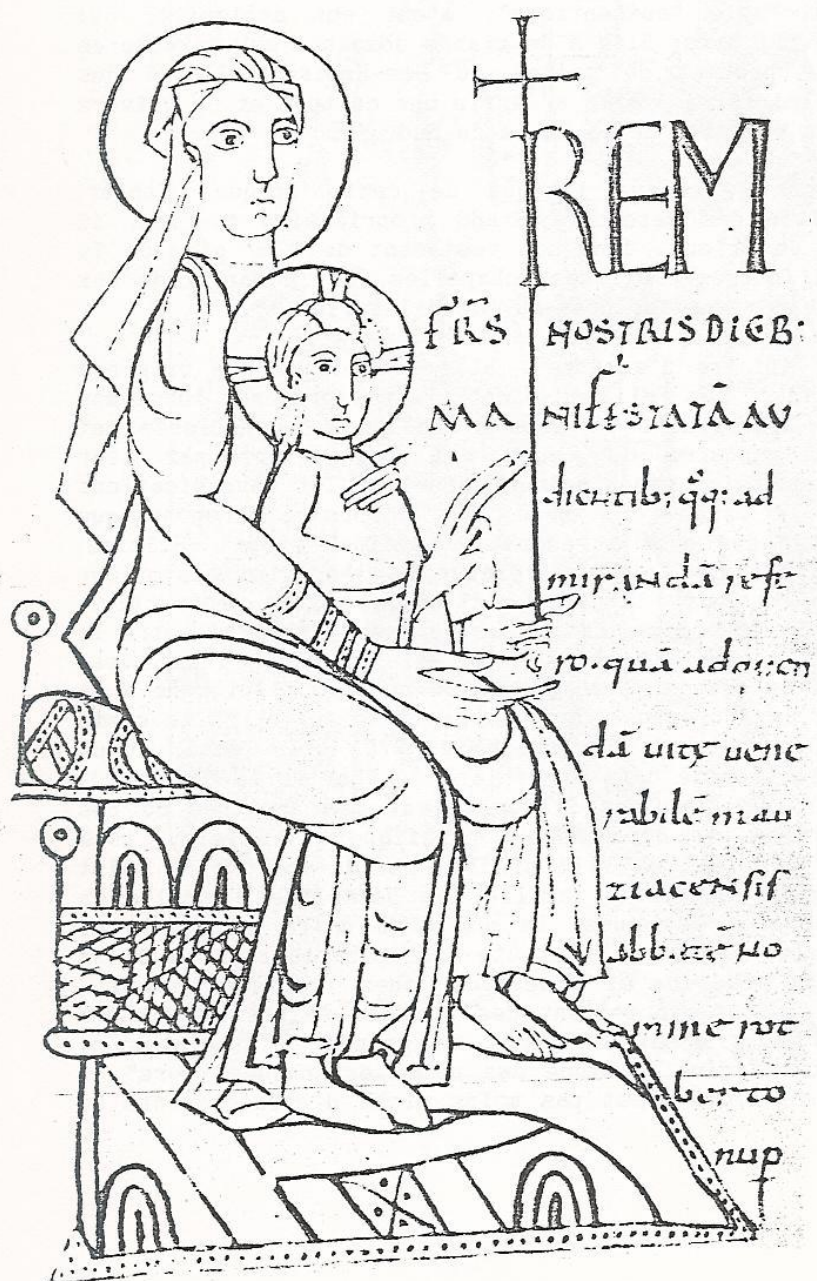 REM
FR̄S NOSTRIS DIEB:
MANIFESTATĀ AU
dientib; q̄q; ad
mirandā refe
ro. quā ad
dā uitę uene
rabilē mau
ziacensis
abb no
mine rot
berto
nup